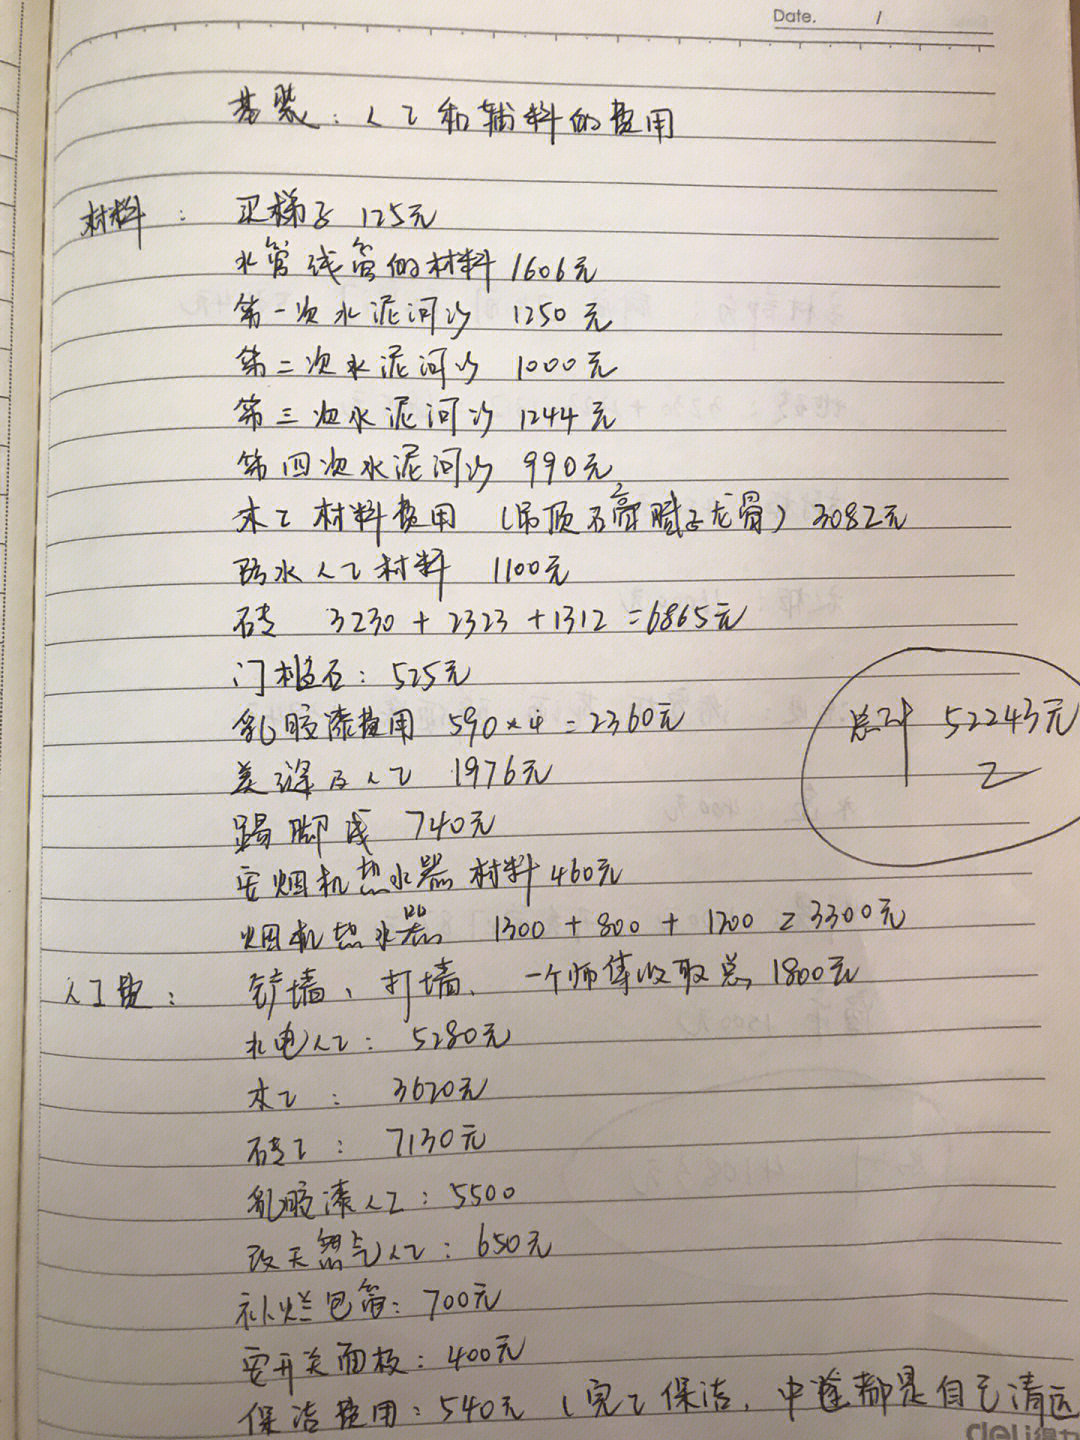 Date. /
基装：人工和辅料的费用
材料： 买梯子 125元
水管线管的材料 1606元
第一次水泥河沙 1250元
第二次水泥河沙 1000元
第三次水泥河沙 1244元
第四次水泥河沙 990元
木工材料费用（吊顶石膏腻子龙骨）3082元
防水人工材料 1100元
砖 3230+2323+1312=6865元
门槛石：525元
乳胶漆费用 590×4=2360元
总计 52243元
美缝及人工 1976元
踢脚线 740元
安烟机热水器材料460元
烟机热水器 1300+800+1200=3300元
人工费： 铲墙、打墙、一个师傅收取总1800元
水电人工：5280元
木工：3620元
砖工：7130元
乳胶漆人工：5500
改天然气人工：650元
补烂包管：700元
安开关面板：400元
保洁费用：540元（完工保洁，中途都是自己清运
deli得力